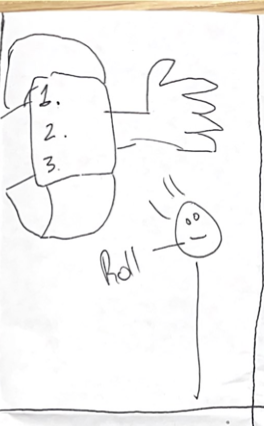 1.
2.
3.
Roll